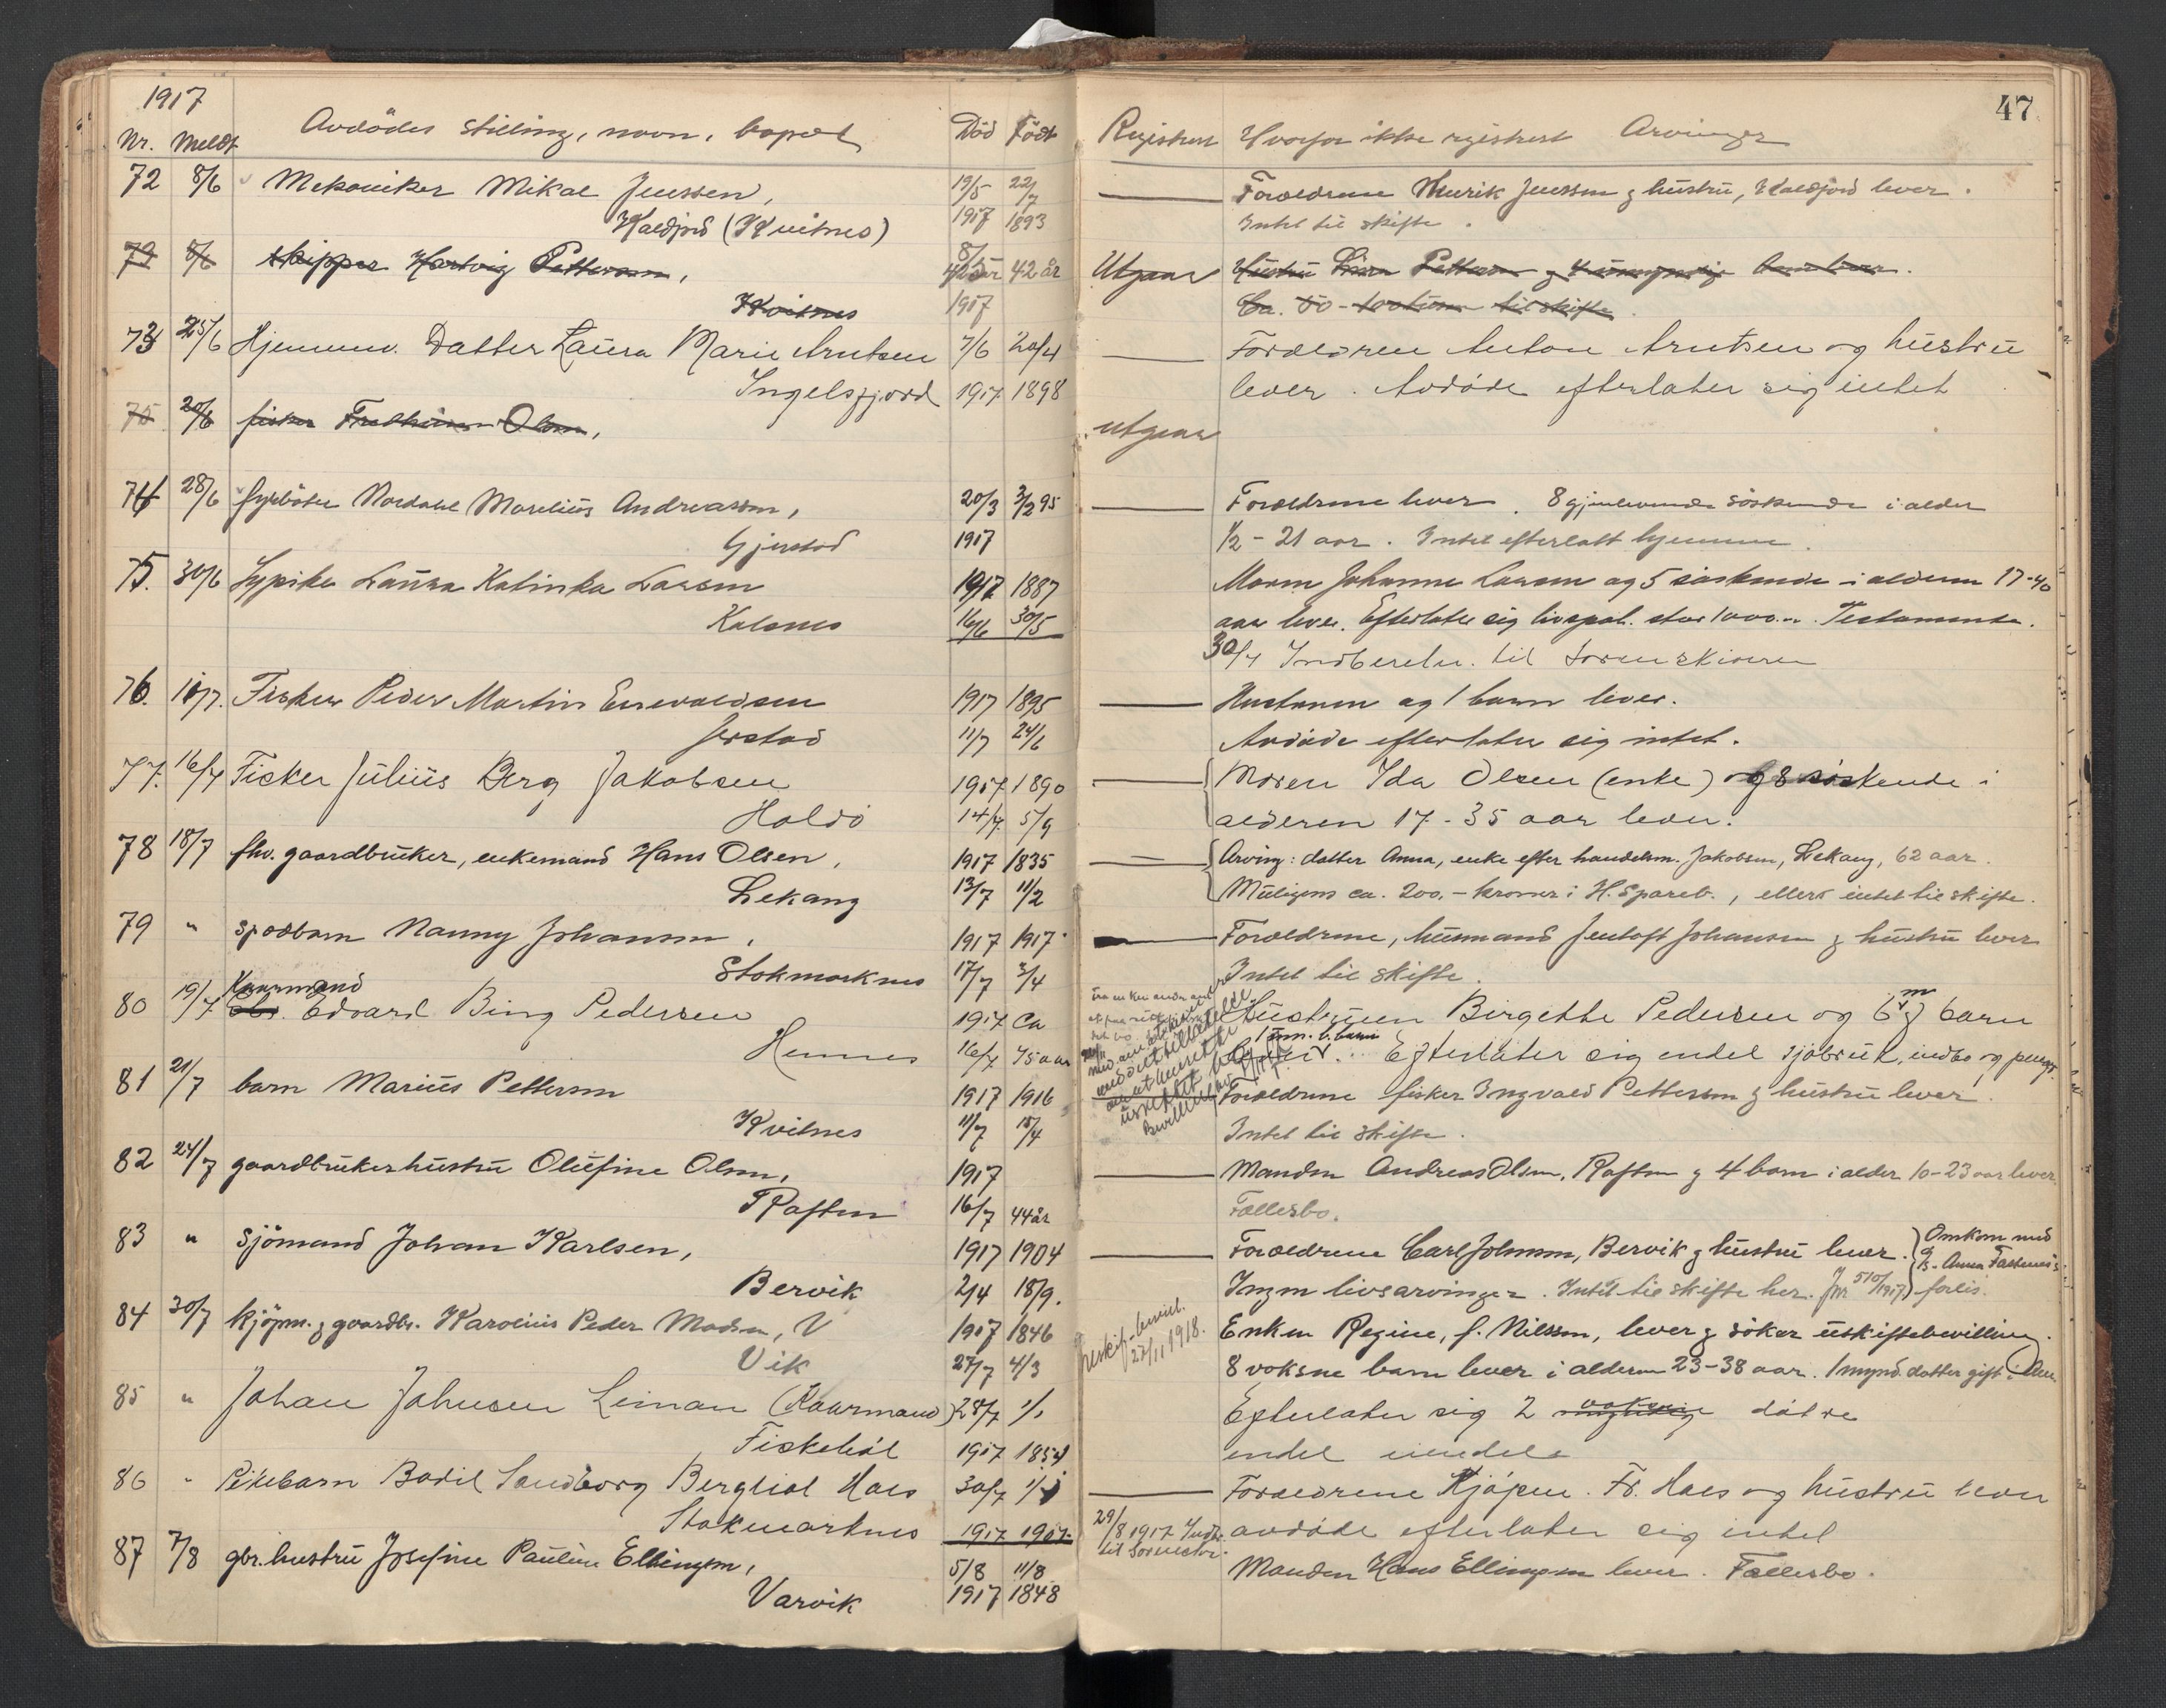 1917
47
Nr. Meldt Avdödes stilling, navn, bopæl Död Födt Registrert Hvorfor ikke registrert Arvinger
72 8/6 Mekaniker Mikal Jenssen, 19/5 22/7 Forældrene Henrik Jenssen & hustru, Kaldfjord lever.
Kaldfjord (Kvitnes) 1917 1893 Intet til skifte.
73 8/6 skipper Hartvig Pettersen, 8/ 42 år Utgaar Hustru Pettersen & 4 umyndige barn lever.
Kvitnes 1917 Ca. 50 til skifte.
73 25/6 Hjemmev. Datter Laura Marie Arntsen 7/6 20/4 Forældren Anton Arntsen og hustru
Ingelsfjord 1917 1898 lever. Avdöde efterlater sig intet
75 20/6 fisker Olsen, utgaar
74 28/6 fyrböter Nordahl Marelius Andreassen, 20/3 3/2 95 Forældrene lever. 8 gjenlevende söskende i alder
Gjerstad 1917 1/2 - 21 aar. Intet efterlatt hjemme.
75. 30/6 Sypike Laura Katinka Larsen 1917 1887 Moren Johanne Larsen og 5 söskende i alderen 17-40
Kalsnes 16/6 30/5 aar lever. Efterlater sig livspol. stor 1000.-. Testamente.
30/7 Indberetn. til sorenskriveren
76. 10/7. Fisker Peder Martin Enevoldsen 1917 1895 Hustruen og 1 barn lever.
Jerstad 11/7 24/6 Avdöde efterlater sig intet.
77. 16/7 Fisker Julius Berg Jakobsen 1917 1890 Moren Ida Olsen (enke) og 8 söskende i
Haldö 14/7 5/9 alderen 17 - 35 aar lever.
78 18/7 fhv. gaardbruker, enkemand Hans Olsen, 1917 1835 Arving: datter Anna, enke efter handelsm. Jakobsen, Lekang, 62 aar.
Lekang 13/7 11/2 Muligens ca. 200,- kroner i H. Spareb., ellers intet til skifte.
79 " spædbarn Nanny Johansen, 1917 1917 Forældrene, husmand Jentoft Johansen & hustru lever
Stokmarknes 17/7 3/4 Intet til skifte.
80 19/7 Kaarmand Edvard Bing Pedersen 1917 Ca Hustruen Birgitte Pedersen og 6 barn
Hennes 16/7 75 aar 1 umn. b. barn Efterlater sig endel sjöbruk, indbo og penger.
81 21/7 barn Marius Pettersen 1917 1916 Forældrene fisker Ingvald Pettersen & hustru lever.
Kvitnes 11/7 15/4 Intet til skifte.
82 24/7 gaardbrukerhustru Olufine Olsen, 1917 Manden Andreas Olsen, Raften & 4 barn i alder 10-23 aar lever.
Raften 16/7 44 år Fællesbo.
83 " sjömand Johan Karlsen, 1917 1904 Forældrene Carl Johnsen, Bervik & hustru lever. Omkom med
Bervik 2/4 18/9. Ingen livsarvinger. Intet til skifte her. Jnr 510/1917 forlis.
84 30/7 kjöpm. & gaardbr. Karolius Peder Madsen, V 1917 1846 Uskif.-bevil. 27/11 1918. Enken Regine, f. Nilssen, lever & söker uskiftebevilling.
Vik 27/7 4/3 8 voksne barn lever i alderen 23-38 aar. 1 mynd. datter gift i Am.
85 " Johan Johnsen Leiman (Kaarmand) 28/7 1/1 Efterlater sig 2 voksne dötre
Fiskeböl 1917 1854 endel eiendele
86 " Pikebarn Bodil Sandborg Bergliot Haes 30/7 1/ Forældrene Kjöpm. Fr. Haes og hustru lever
Stokmarknes 1917 1917 29/8 1917 Indb. til Sorenskr. avdöde efterlater sig intet
87 7/8 gbr. hustru Josefine Pauline Ellingsen, 5/8 11/8 Manden Hans Ellingsen lever. Fællesbo.
Varvik 1917 1848